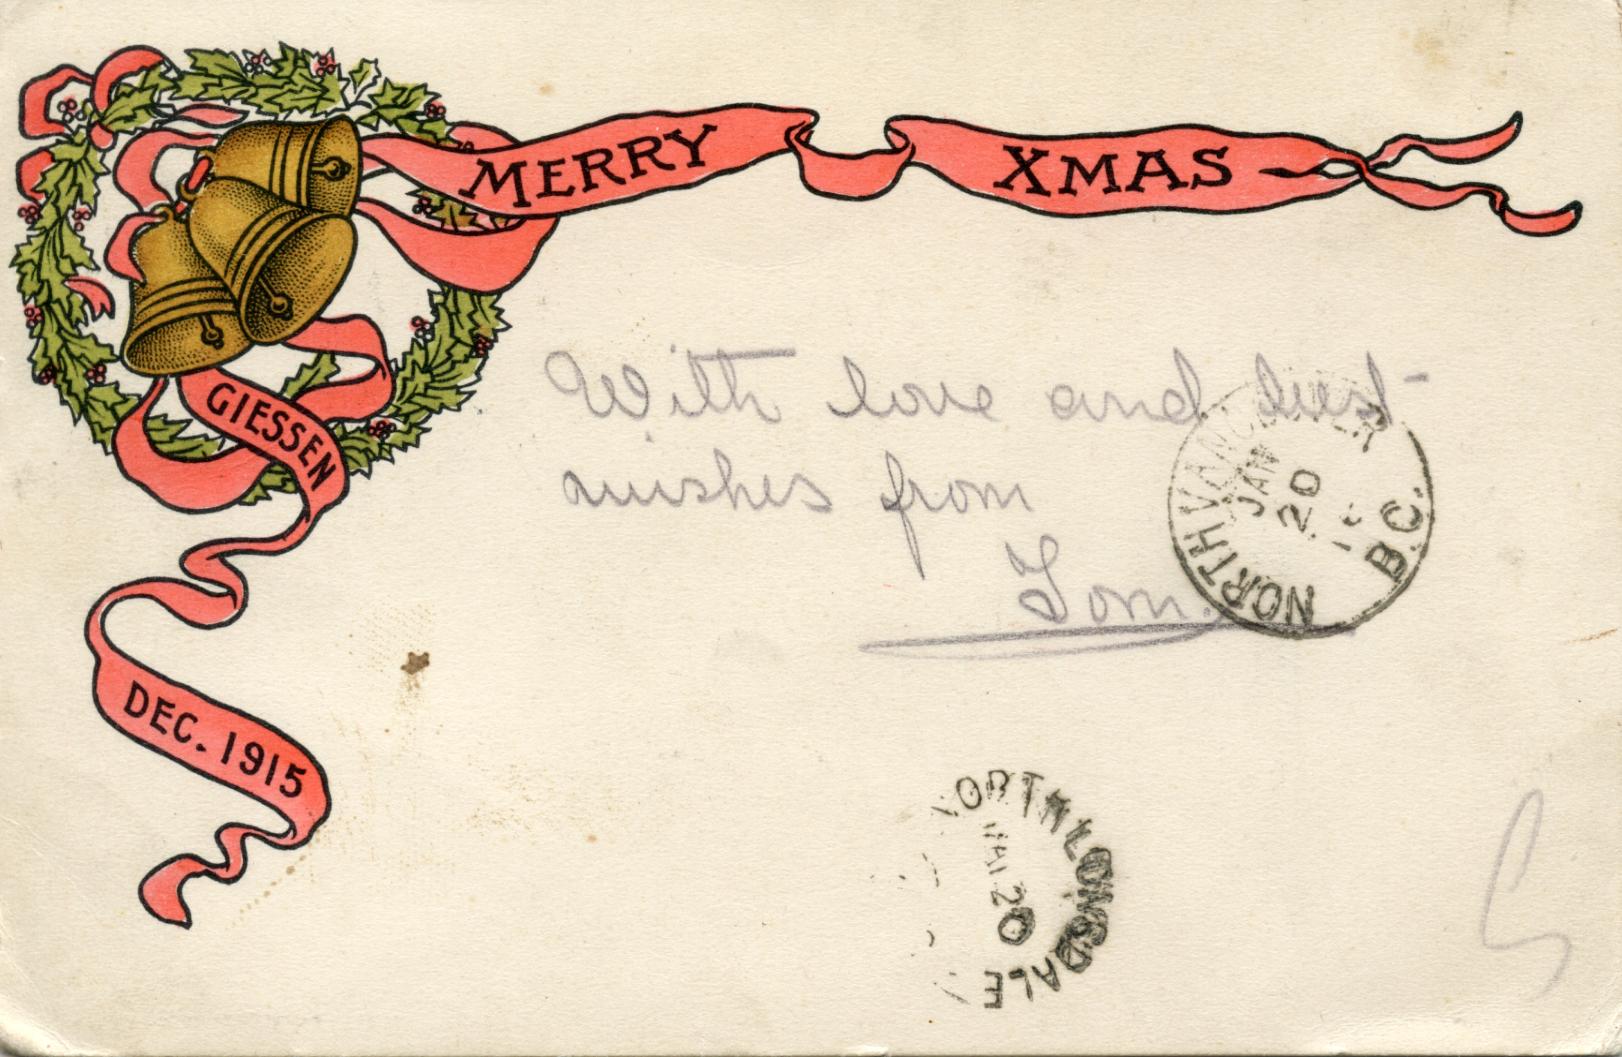 MERRY XMAS
GIESSEN
DEC. 1915
With love and best
wishes from
Tom.
NORTH VANCOUVER
JAN
20
B.C.
NORTH LONSDALE
20